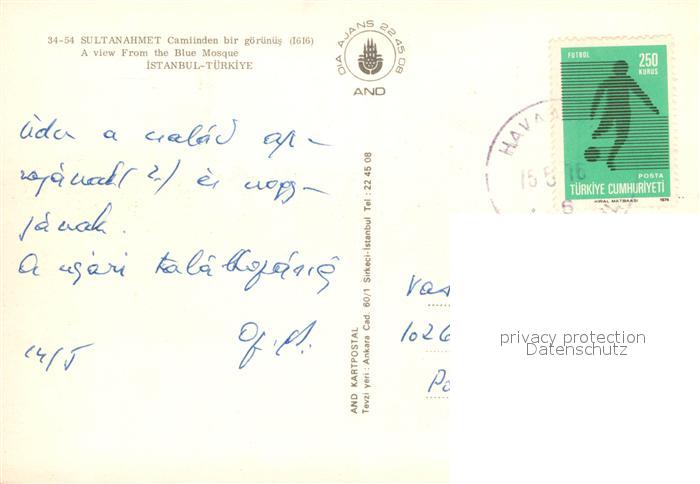 34-54 SULTANAHMET Camiinden bir görünüş (1616)
A view From the Blue Mosque
İSTANBUL-TÜRKİYE
DIA AJANS 22 45 08
AND
FUTBOL
250
KURUŞ
POSTA
TÜRKİYE CUMHURİYETİ
1974
HAVA
15 5 76
Üdv a család ap-
rajának(?) és nagy-
jának.
A nyári találkozásig
14/V
AND KARTPOSTAL
Tevzi yeri: Ankara Cad. 60/1 Sirkeci-İstanbul Tel: 22 45 08
Vas
1026
privacy protection
Datenschutz